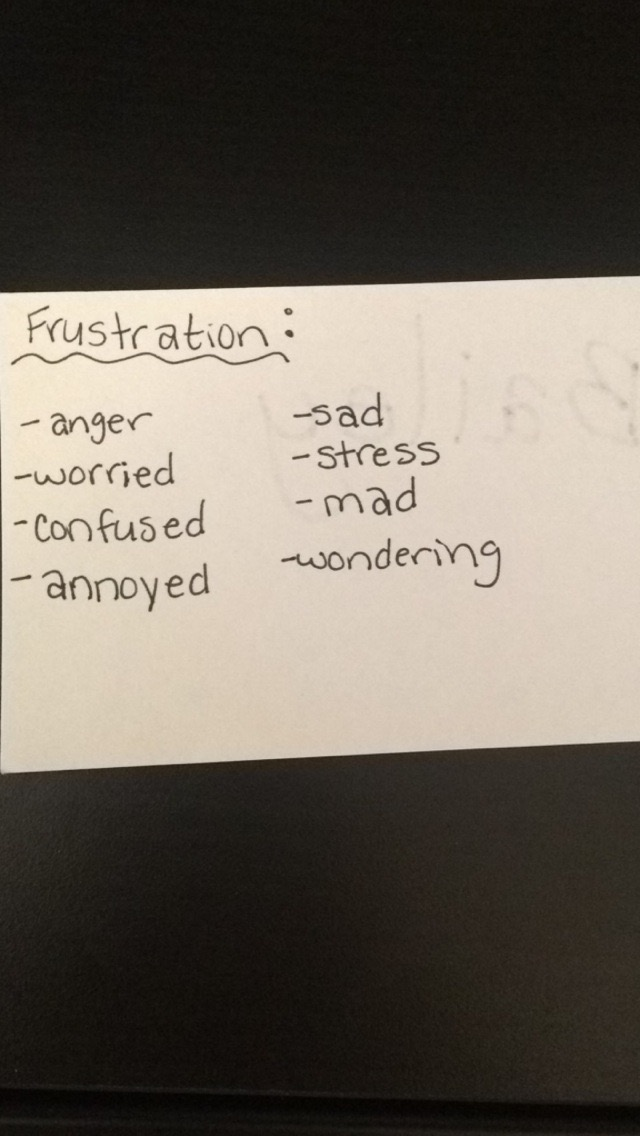 Frustration:
- anger
- worried
- confused
- annoyed
- sad
- stress
- mad
- wondering
Bailey